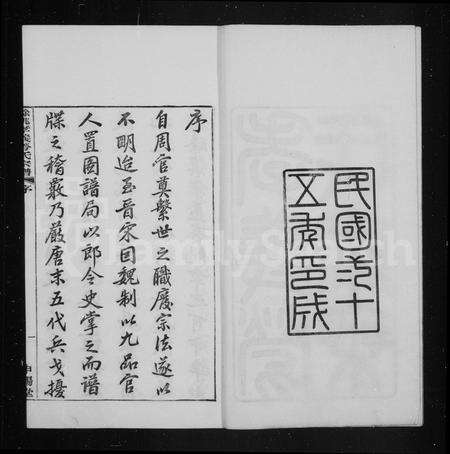 民國卅十
五年印成
序
自周官奠繫世之職廢宗法遂以
不明迨至晉宋因魏制以九品官
人置圖譜局以郎令史掌之而譜
牒之稽覈乃嚴唐末五代兵戈擾
氏宗譜 序
一